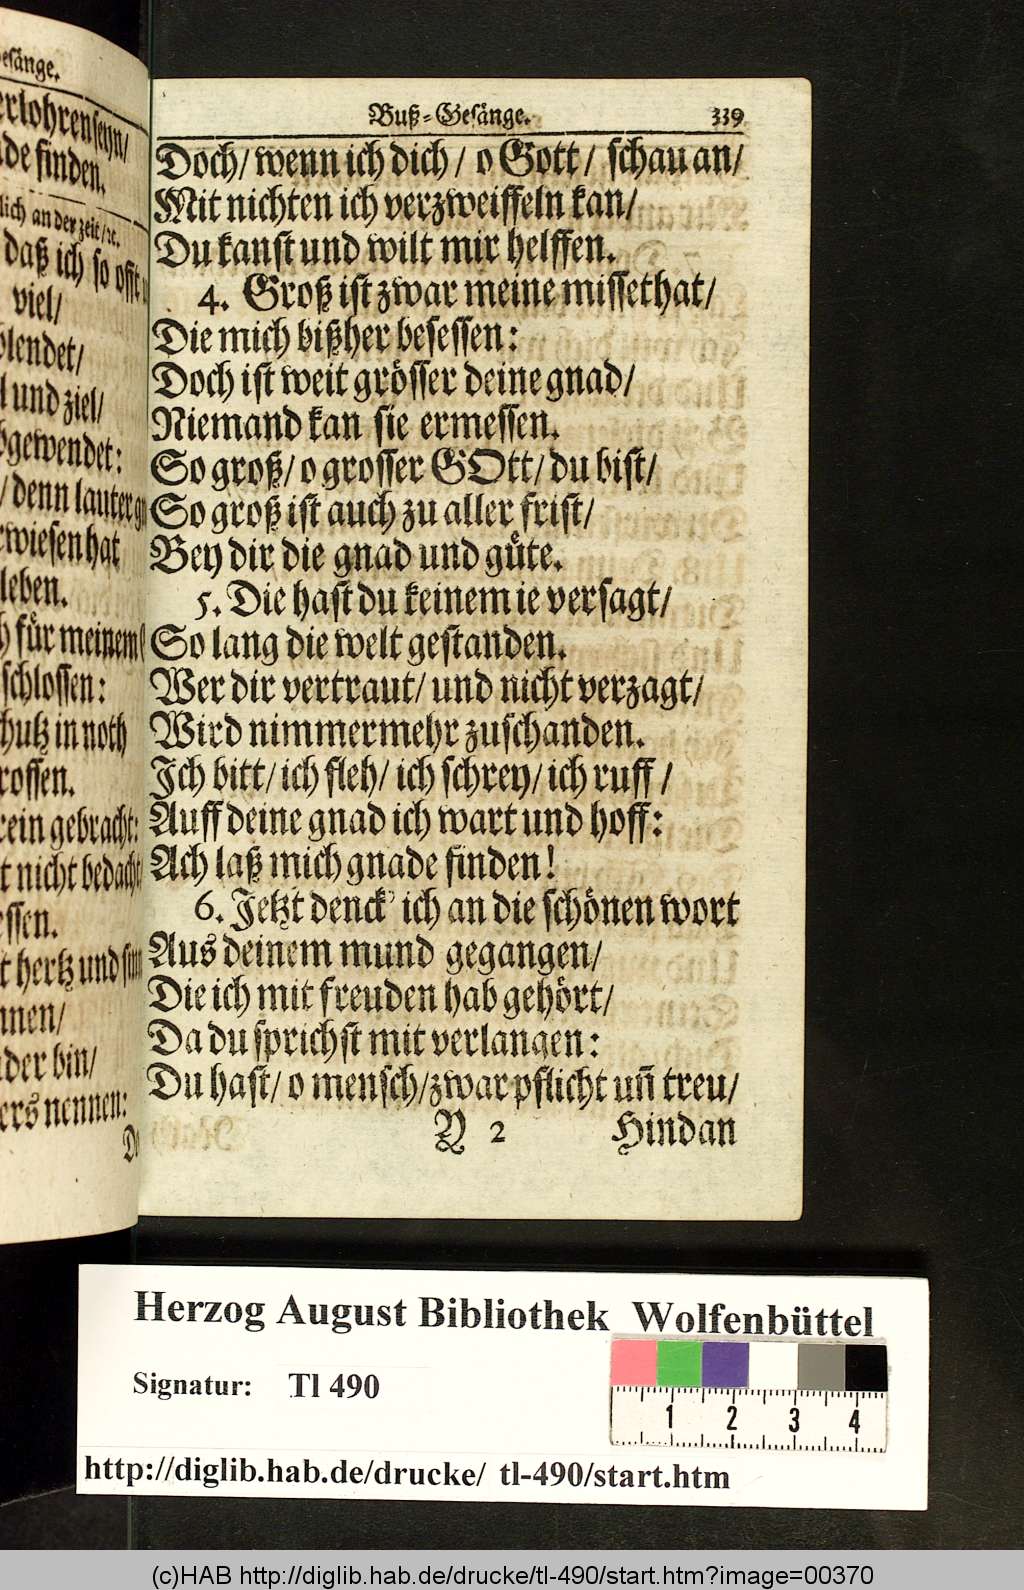 esänge.
erlohren seyn/
de finden.
lich an der zeit/ ꝛc.
daß ich so offt
viel/
blendet/
l und ziel/
bgewendet:
/ denn lauter
rwiesen hat
leben.
h für meinem
schlossen:
hutz in noth
rossen.
rein gebracht:
t nicht bedacht
essen.
t hertz und sinn
nnen/
der bin/
ers nennen:
Buß-Gesänge. 339
Doch/ wenn ich dich/ o Gott/ schau an/
Mit nichten ich verzweiffeln kan/
Du kanst und wilt mir helffen.
4. Groß ist zwar meine missethat/
Die mich bißher besessen:
Doch ist weit grösser deine gnad/
Niemand kan sie ermessen.
So groß/ o grosser GOtt/ du bist/
So groß ist auch zu aller frist/
Bey dir die gnad und güte.
5. Die hast du keinem ie versagt/
So lang die welt gestanden.
Wer dir vertraut/ und nicht verzagt/
Wird nimmermehr zuschanden.
Ich bitt/ ich fleh/ ich schrey/ ich ruff/
Auff deine gnad ich wart und hoff:
Ach laß mich gnade finden!
6. Jetzt denck' ich an die schönen wort
Aus deinem mund gegangen/
Die ich mit freuden hab gehört/
Da du sprichst mit verlangen:
Du hast/ o mensch/ zwar pflicht uñ treu/
Y 2 Hindan
Herzog August Bibliothek Wolfenbüttel
Signatur: Tl 490
1 2 3 4
http://diglib.hab.de/drucke/ tl-490/start.htm
(c)HAB http://diglib.hab.de/drucke/tl-490/start.htm?image=00370